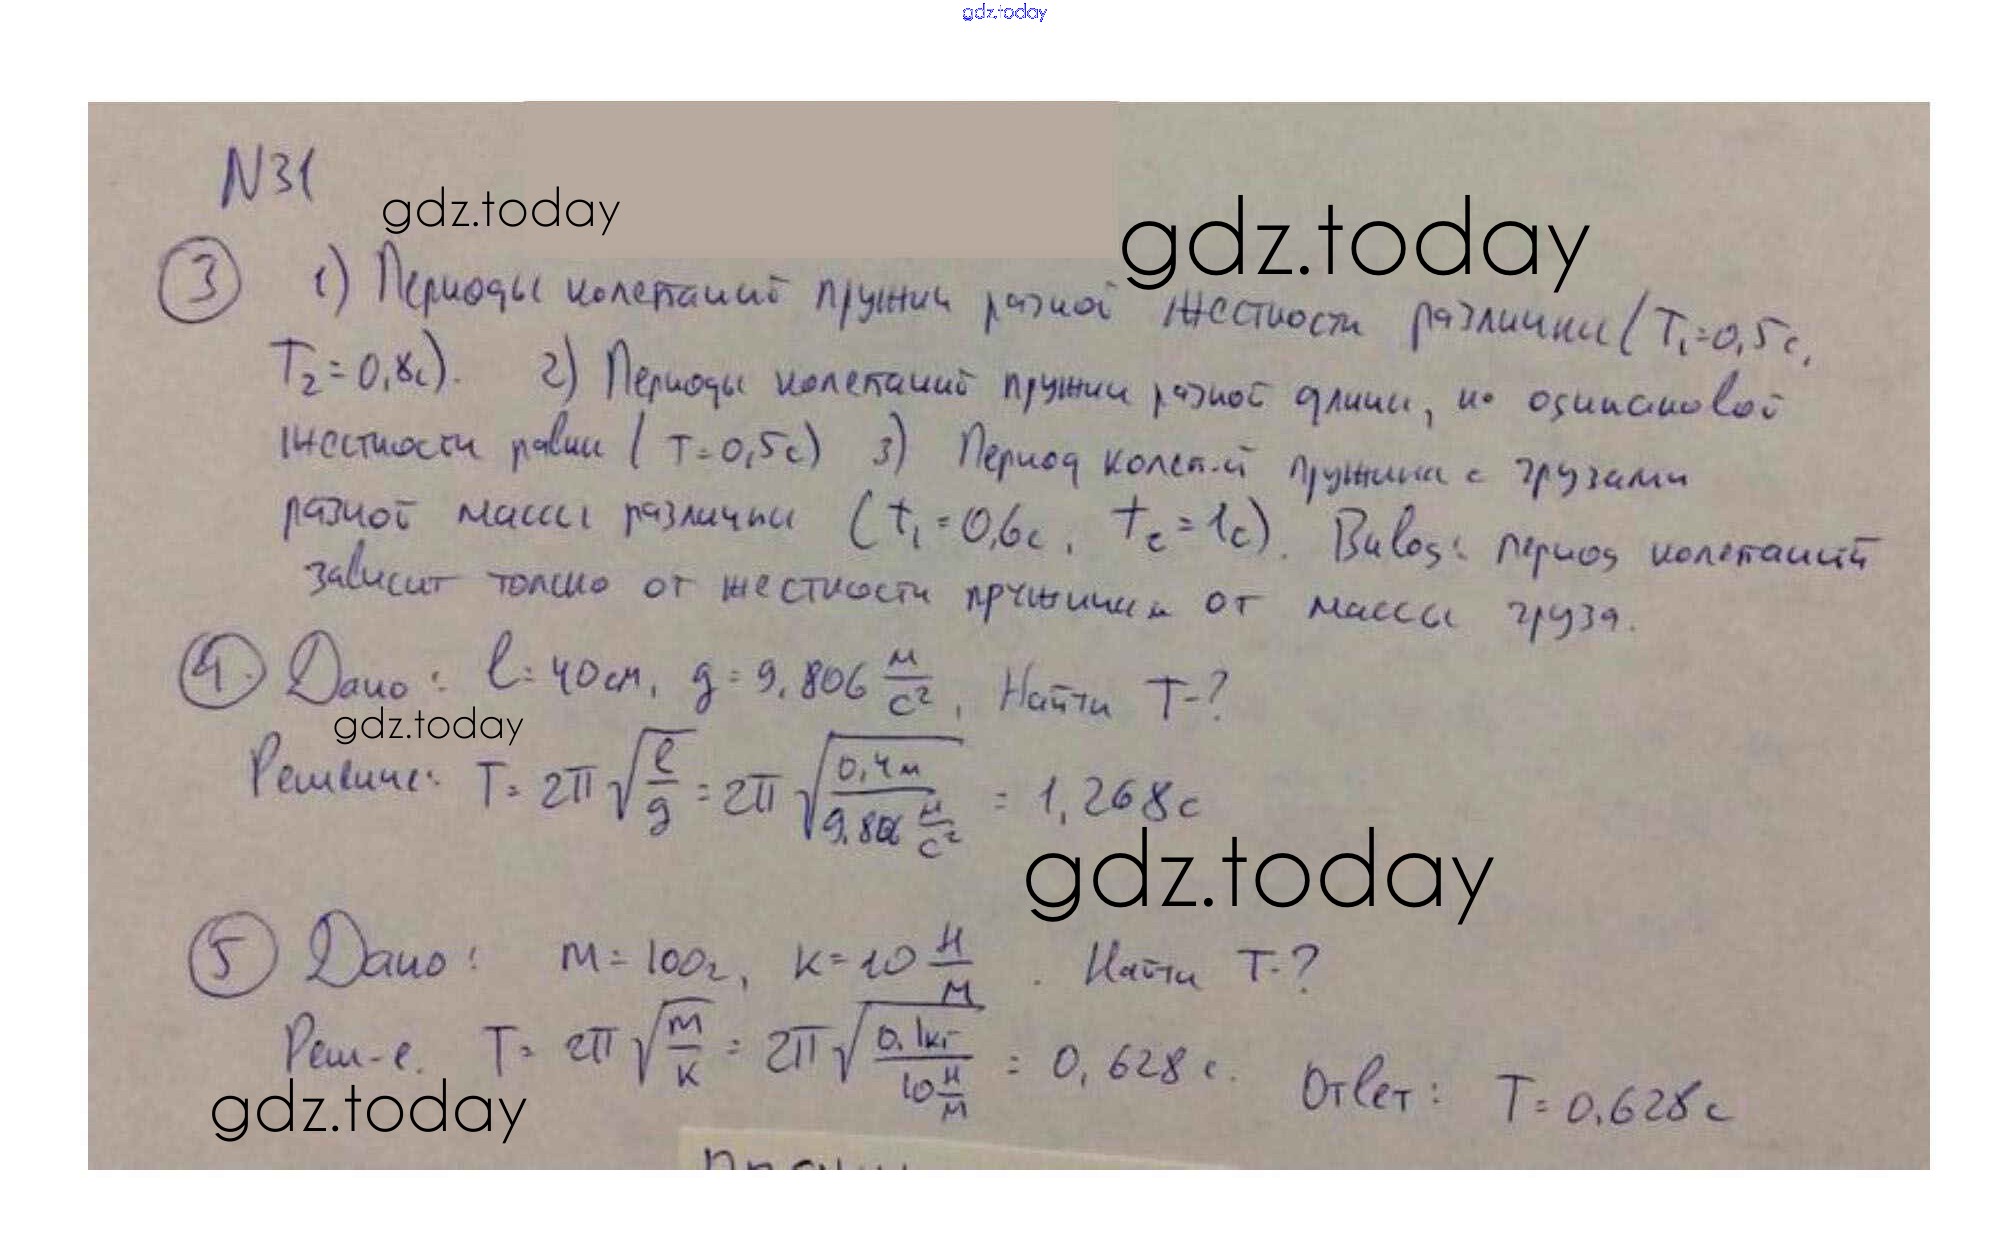 gdz.today
N31
gdz.today
gdz.today
③ 1) Периоды колебаний пружин разной жесткости различны (T₁=0,5с,
T₂=0,8с). 2) Периоды колебаний пружин разной длины, но одинаковой
жесткости равны (T=0,5с) 3) Период колеб-й пружины с грузами
разной массы различны (t₁=0,6с, t₂=1с). Вывод: период колебаний
зависит только от жесткости пружины и от массы груза.
④. Дано: l=40см, g=9,806 м/с², Найти T-?
gdz.today
Решение: T=2π√(l/g)=2π√(0,4м/9,806 м/с²) = 1,268с
gdz.today
⑤ Дано: m=100г, k=10 Н/м. Найти T-?
Реш-е. T=2π√(m/k)=2π√(0,1кг/10 Н/м) = 0,628с. Ответ: T=0,628с
gdz.today